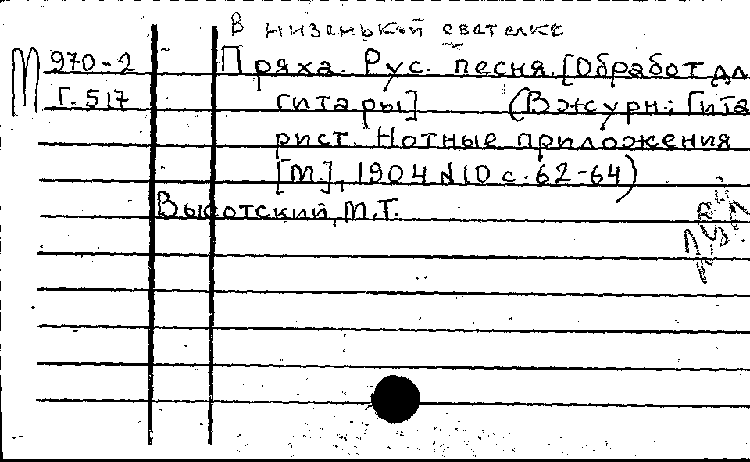 В низенькой светелке
М 970-2 Пряха. Рус. песня. [Обработ дл
Г. 517 гитары] (В журн.: Гита
рист. Нотные приложения
[М.], 1904 №10 с. 62-64)
Высотский, М.Т.